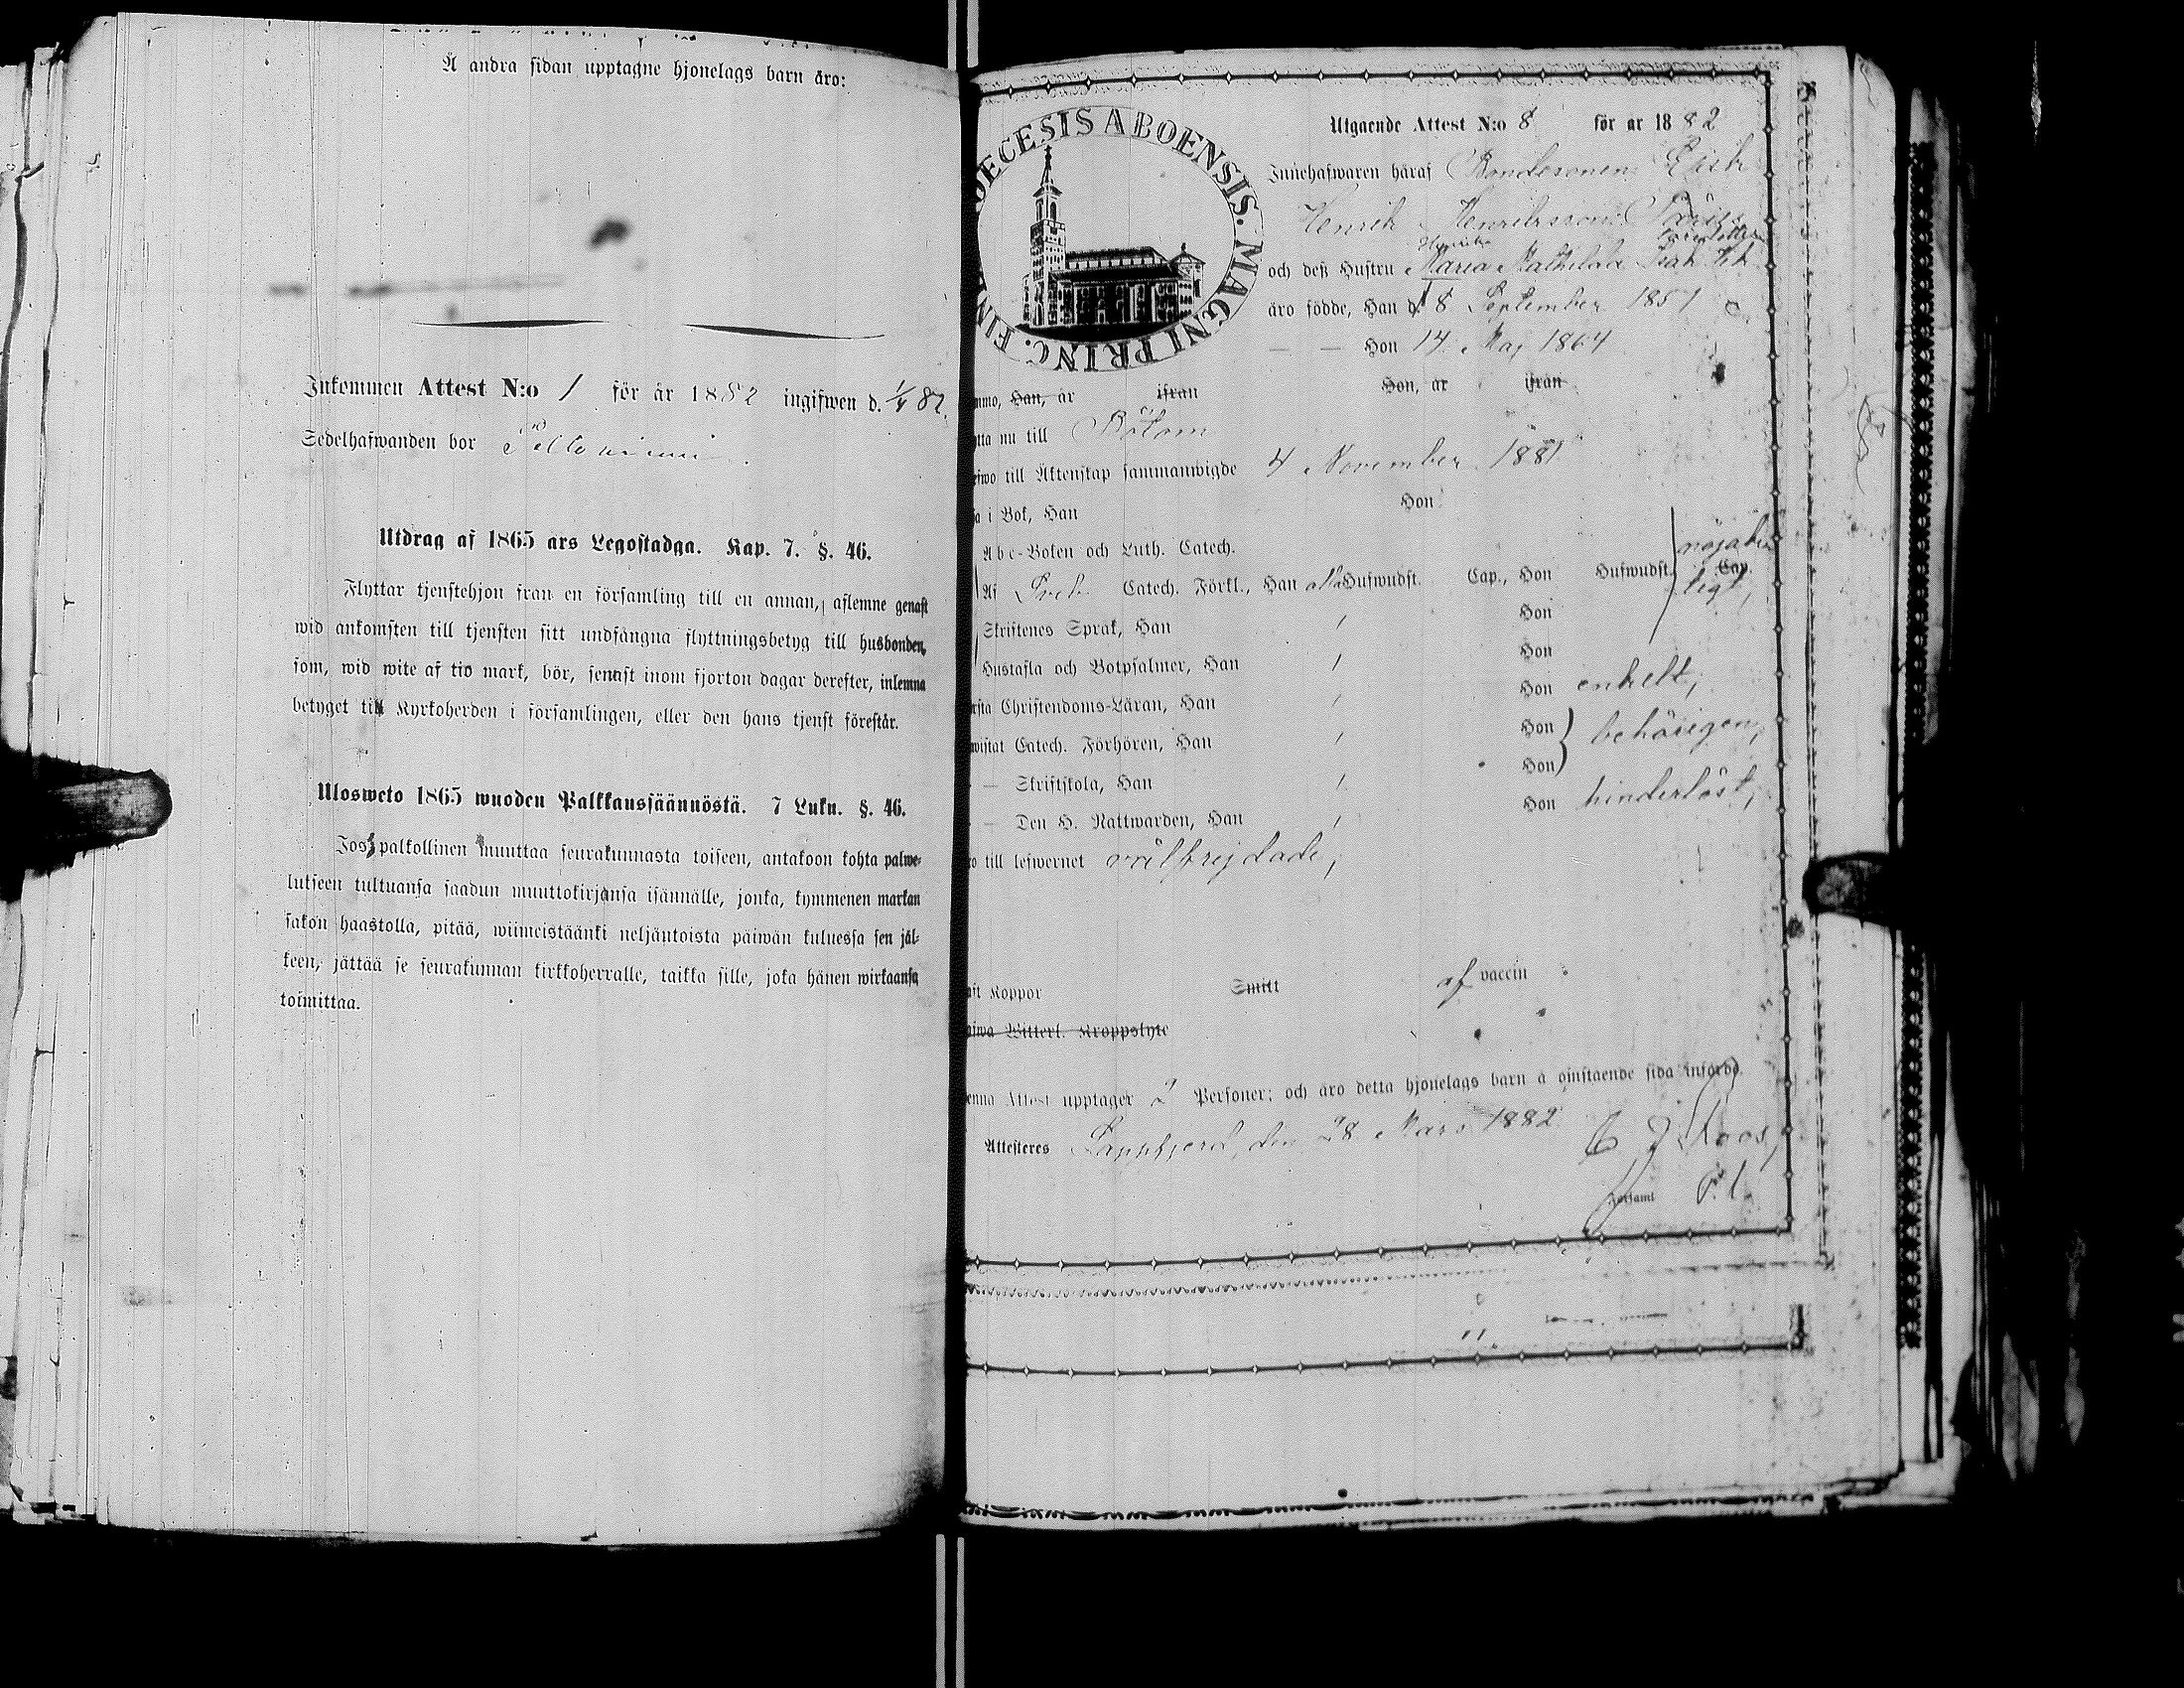 Å andra sidan upptagne hjonelags barn äro:
Inkommen Attest N:o 1 för år 1882 ingifwen d. 1/4 82.
Sedelhafwanden bor
Utdrag af 1865 års Legostadga. Kap. 7. §. 46.
Flyttar tjenstehjon från en församling till en annan, aflemne genast
wid ankomsten till tjensten sitt undfångna flyttningsbetyg till husbonden,
som, wid wite af tio mark, bör, senast inom fjorton dagar derefter, inlemna
betyget till Kyrkoherden i församlingen, eller den hans tjenst förestår.
Ulosweto 1865 wuoden Palkkaussäännöstä. 7 Luku. §. 46.
Jos palkollinen muuttaa seurakunnasta toiseen, antakoon kohta palwe-
lukseen tultuansa saadun muuttokirjansa isännälle, jonka, kymmenen markan
sakon haastolla, pitää, wiimeistäänki neljäntoista päiwän kuluessa sen jäl-
keen, jättää se seurakunnan kirkkoherralle, taikka sille, joka hänen wirkaansa
toimittaa.
DECESIS ABOENSIS. MAGNI PRINC. FIN
Utgående Attest N:o 8 för år 1882
Innehafwaren häraf Bondesonen Erik
Henrik Henriksson
och deß Hustru Maria Mathilda
äro födde, Han d. 8 September 1857
— — Hon 14 Maj 1864
mmo, Han, är ifrån Hon, är ifrån
tta nu till Bötom
efwo till Äktenskap sammanwigde 4 November 1881
sa i Bok, Han Hon
Abc-Boken och Luth. Catech. nöjaktigt,
Af Sveb. Catech. Förkl., Han alla Hufwudst. Cap., Hon Hufwudst. Cap.
Skriftenes Språk, Han Hon
Hustafla och Botpsalmer, Han Hon
rsta Christendoms-Läran, Han Hon enkelt,
wistat Catech. Förhören, Han Hon behörigen,
— Skriftskola, Han Hon
— Den H. Nattwarden, Han Hon hinderlöst,
ro till lefwernet välfrejdade,
aft Koppor Smitt af vaccin
afwa Witterl. Kroppslyte
enna Attest upptager 2 Personer; och äro detta hjonelags barn å omstående sida införda.
Attesteres Lappfjerd, den 28 Mars 1882